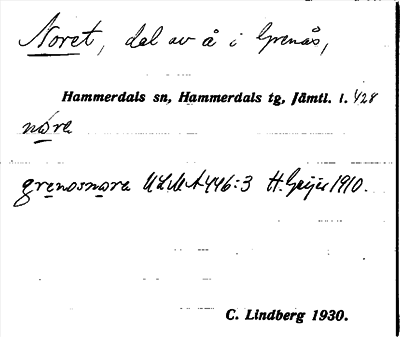 Noret, del av å i Grenås,
Hammerdals sn, Hammerdals tg, Jämtl. l. 428
nore
grenosnora ULMA 446:3 H. Geijer 1910.
C. Lindberg 1930.